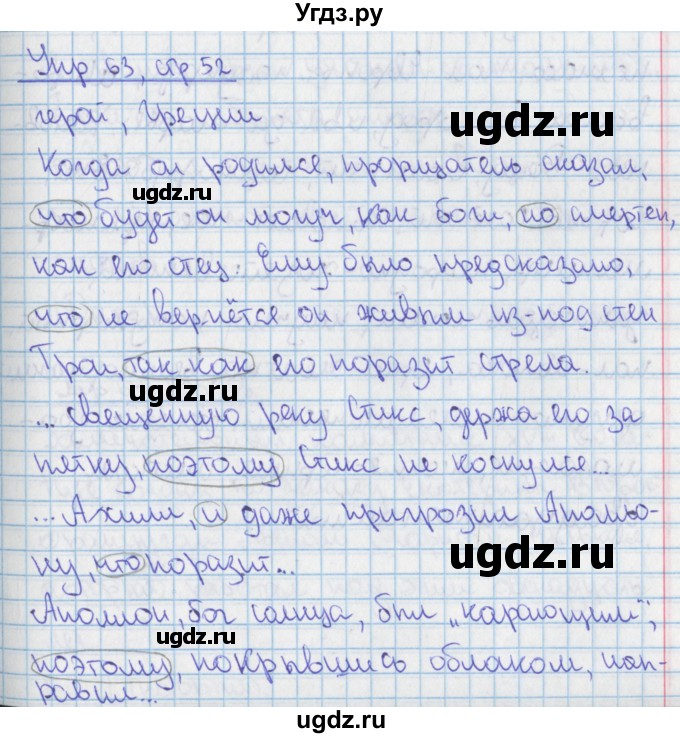 Угдз.ру
Упр 63, стр 52
герой, Греции
ugdz.ru
Когда он родился, прорицатель сказал,
ugdz.ru
что будет он могуч, как боги, но смертен,
как его отец. Ему было предсказано,
что не вернётся он живым из-под стен
Трои, так как его поразит стрела.
ugdz.ru
... священную реку Стикс, держа его за
пятку, поэтому Стикс не коснулся...
... Ахилл, и даже пригрозил Аполло-
ugdz.ru
ну, что поразит...
Аполлон, бог солнца, был „карающим“,
ugdz.ru
поэтому, покрывшись облаком, нап-
равил...
ugdz.ru